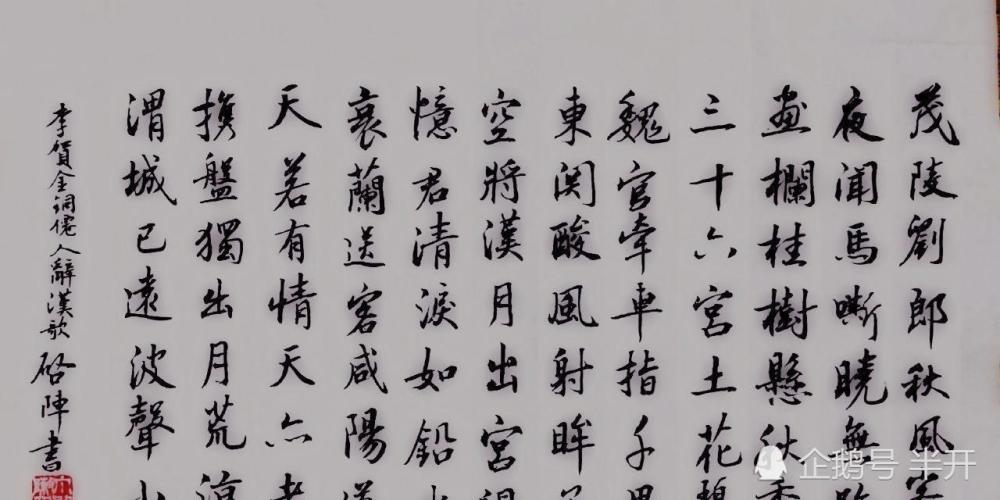 茂陵劉郎秋風
夜聞馬嘶曉無
畫欄桂樹懸秋香
三十六宮土花碧
魏官牽車指千里
東関酸風射眸
空將漢月出宮
憶君清淚如鉛
衰蘭送客咸陽
天若有情天亦老
携盤獨出月荒凉
渭城已遠波聲
李賀金詞僊人辭漢歌 启陣書
企鹅号 半开